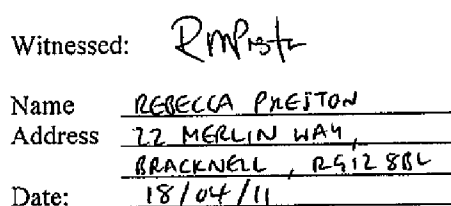 Witnessed: RMPrestn
Name REBECCA PRESTON
Address 22 MERLIN WAY,
BRACKNELL, RG12 8BL
Date: 18/04/11